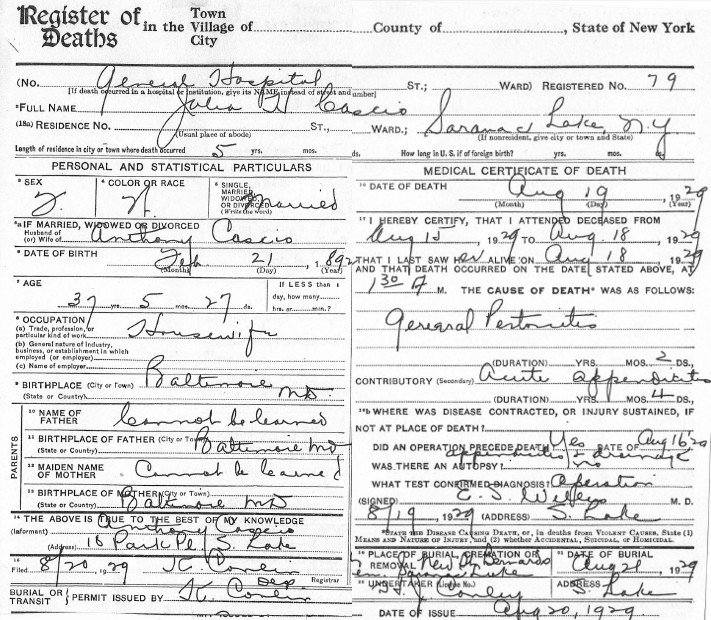 Register of Deaths in the Town Village of City County of , State of New York
(No. General Hospital St.; Ward) Registered No. 79
[If death occurred in a hospital or institution, give its NAME instead of street and number]
2 FULL NAME Julia H Cascio
(18a) RESIDENCE No. St., Ward; Saranac Lake, N.Y.
(Usual place of abode) (If nonresident, give city or town and State)
Length of residence in city or town where death occurred 5 yrs. mos. ds. How long in U. S. if of foreign birth? yrs. mos. ds.
PERSONAL AND STATISTICAL PARTICULARS
3 SEX F.
4 COLOR OR RACE W.
5 SINGLE, MARRIED, WIDOWED OR DIVORCED (Write the word) Married
5a IF MARRIED, WIDOWED OR DIVORCED
Husband of (or) Wife of Anthony Cascio
6 DATE OF BIRTH Feb 21, 1892
(Month) (Day) (Year)
7 AGE If LESS than 1 day, how many
37 yrs. 5 mos. 27 ds. hrs. or min.?
8 OCCUPATION
(a) Trade, profession, or particular kind of work Housewife
(b) General nature of industry, business, or establishment in which employed (or employer)
(c) Name of employer
9 BIRTHPLACE (City or Town) Baltimore
(State or Country) Md
PARENTS
10 NAME OF FATHER Cannot be learned
11 BIRTHPLACE OF FATHER (City or Town) Baltimore Md
(State or Country)
12 MAIDEN NAME OF MOTHER Cannot be learned
13 BIRTHPLACE OF MOTHER (City or Town)
(State or Country) Baltimore Md
14 THE ABOVE IS TRUE TO THE BEST OF MY KNOWLEDGE
(Informant) Anthony Cascio
(Address) 16 Park Pl, S. Lake
15 Filed 8/20, 1929 H Conlin
Dep. Registrar
BURIAL OR TRANSIT PERMIT ISSUED BY H. Conlin
MEDICAL CERTIFICATE OF DEATH
16 DATE OF DEATH Aug 19, 1929
(Month) (Day) (Year)
17 I HEREBY CERTIFY, THAT I ATTENDED DECEASED FROM
Aug 15, 1929 TO Aug. 18, 1929
THAT I LAST SAW HER ALIVE ON Aug 18 1929
AND THAT DEATH OCCURRED ON THE DATE STATED ABOVE, AT
1 30 A M. THE CAUSE OF DEATH* WAS AS FOLLOWS:
General Peritonitis
(DURATION) YRS. MOS. 2 DS,
CONTRIBUTORY (Secondary) Acute appendicitis
(DURATION) YRS. MOS. 4 DS.
18b WHERE WAS DISEASE CONTRACTED, OR INJURY SUSTAINED, IF
NOT AT PLACE OF DEATH?
DID AN OPERATION PRECEDE DEATH Yes DATE OF Aug 16 '29
drainage
WAS THERE AN AUTOPSY? no
WHAT TEST CONFIRMED DIAGNOSIS? Operation
(SIGNED) M. D.
8/19, 1929 (ADDRESS) S. Lake
*STATE THE DISEASE CAUSING DEATH, or, in deaths from VIOLENT CAUSES, State (1) MEANS AND NATURE OF INJURY, and (2) whether ACCIDENTAL, SUICIDAL, OR HOMICIDAL.
19 PLACE OF BURIAL, CREMATION OR REMOVAL New St Bernards Cem. Saranac Lake
DATE OF BURIAL Aug 21, 1929
20 UNDERTAKER (License No.) Conley
ADDRESS S. Lake
DATE OF ISSUE Aug 20, 1929